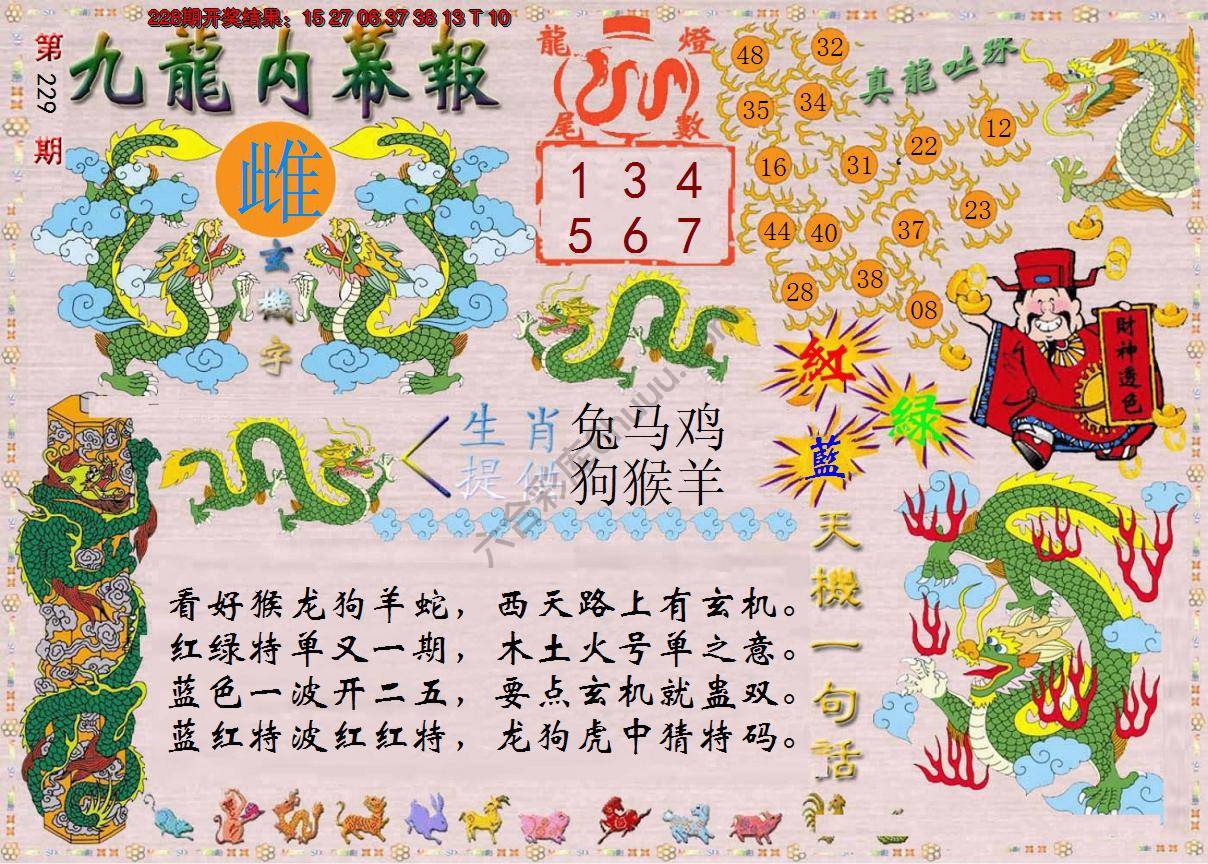 228期开奖结果：15 27 06 37 38 13 T 10
第229期
九龍内幕報
雌
玄機字
龍燈
尾數
1 3 4
5 6 7
真龍吐珠
48 32
35 34
16 31 22 12
44 40 37 23
28 38 08
財神透色
紅
綠
藍
生肖 兔马鸡
提供 狗猴羊
天機一句話
看好猴龙狗羊蛇，西天路上有玄机。
红绿特单又一期，木土火号单之意。
蓝色一波开二五，要点玄机就蛊双。
蓝红特波红红特，龙狗虎中猜特码。